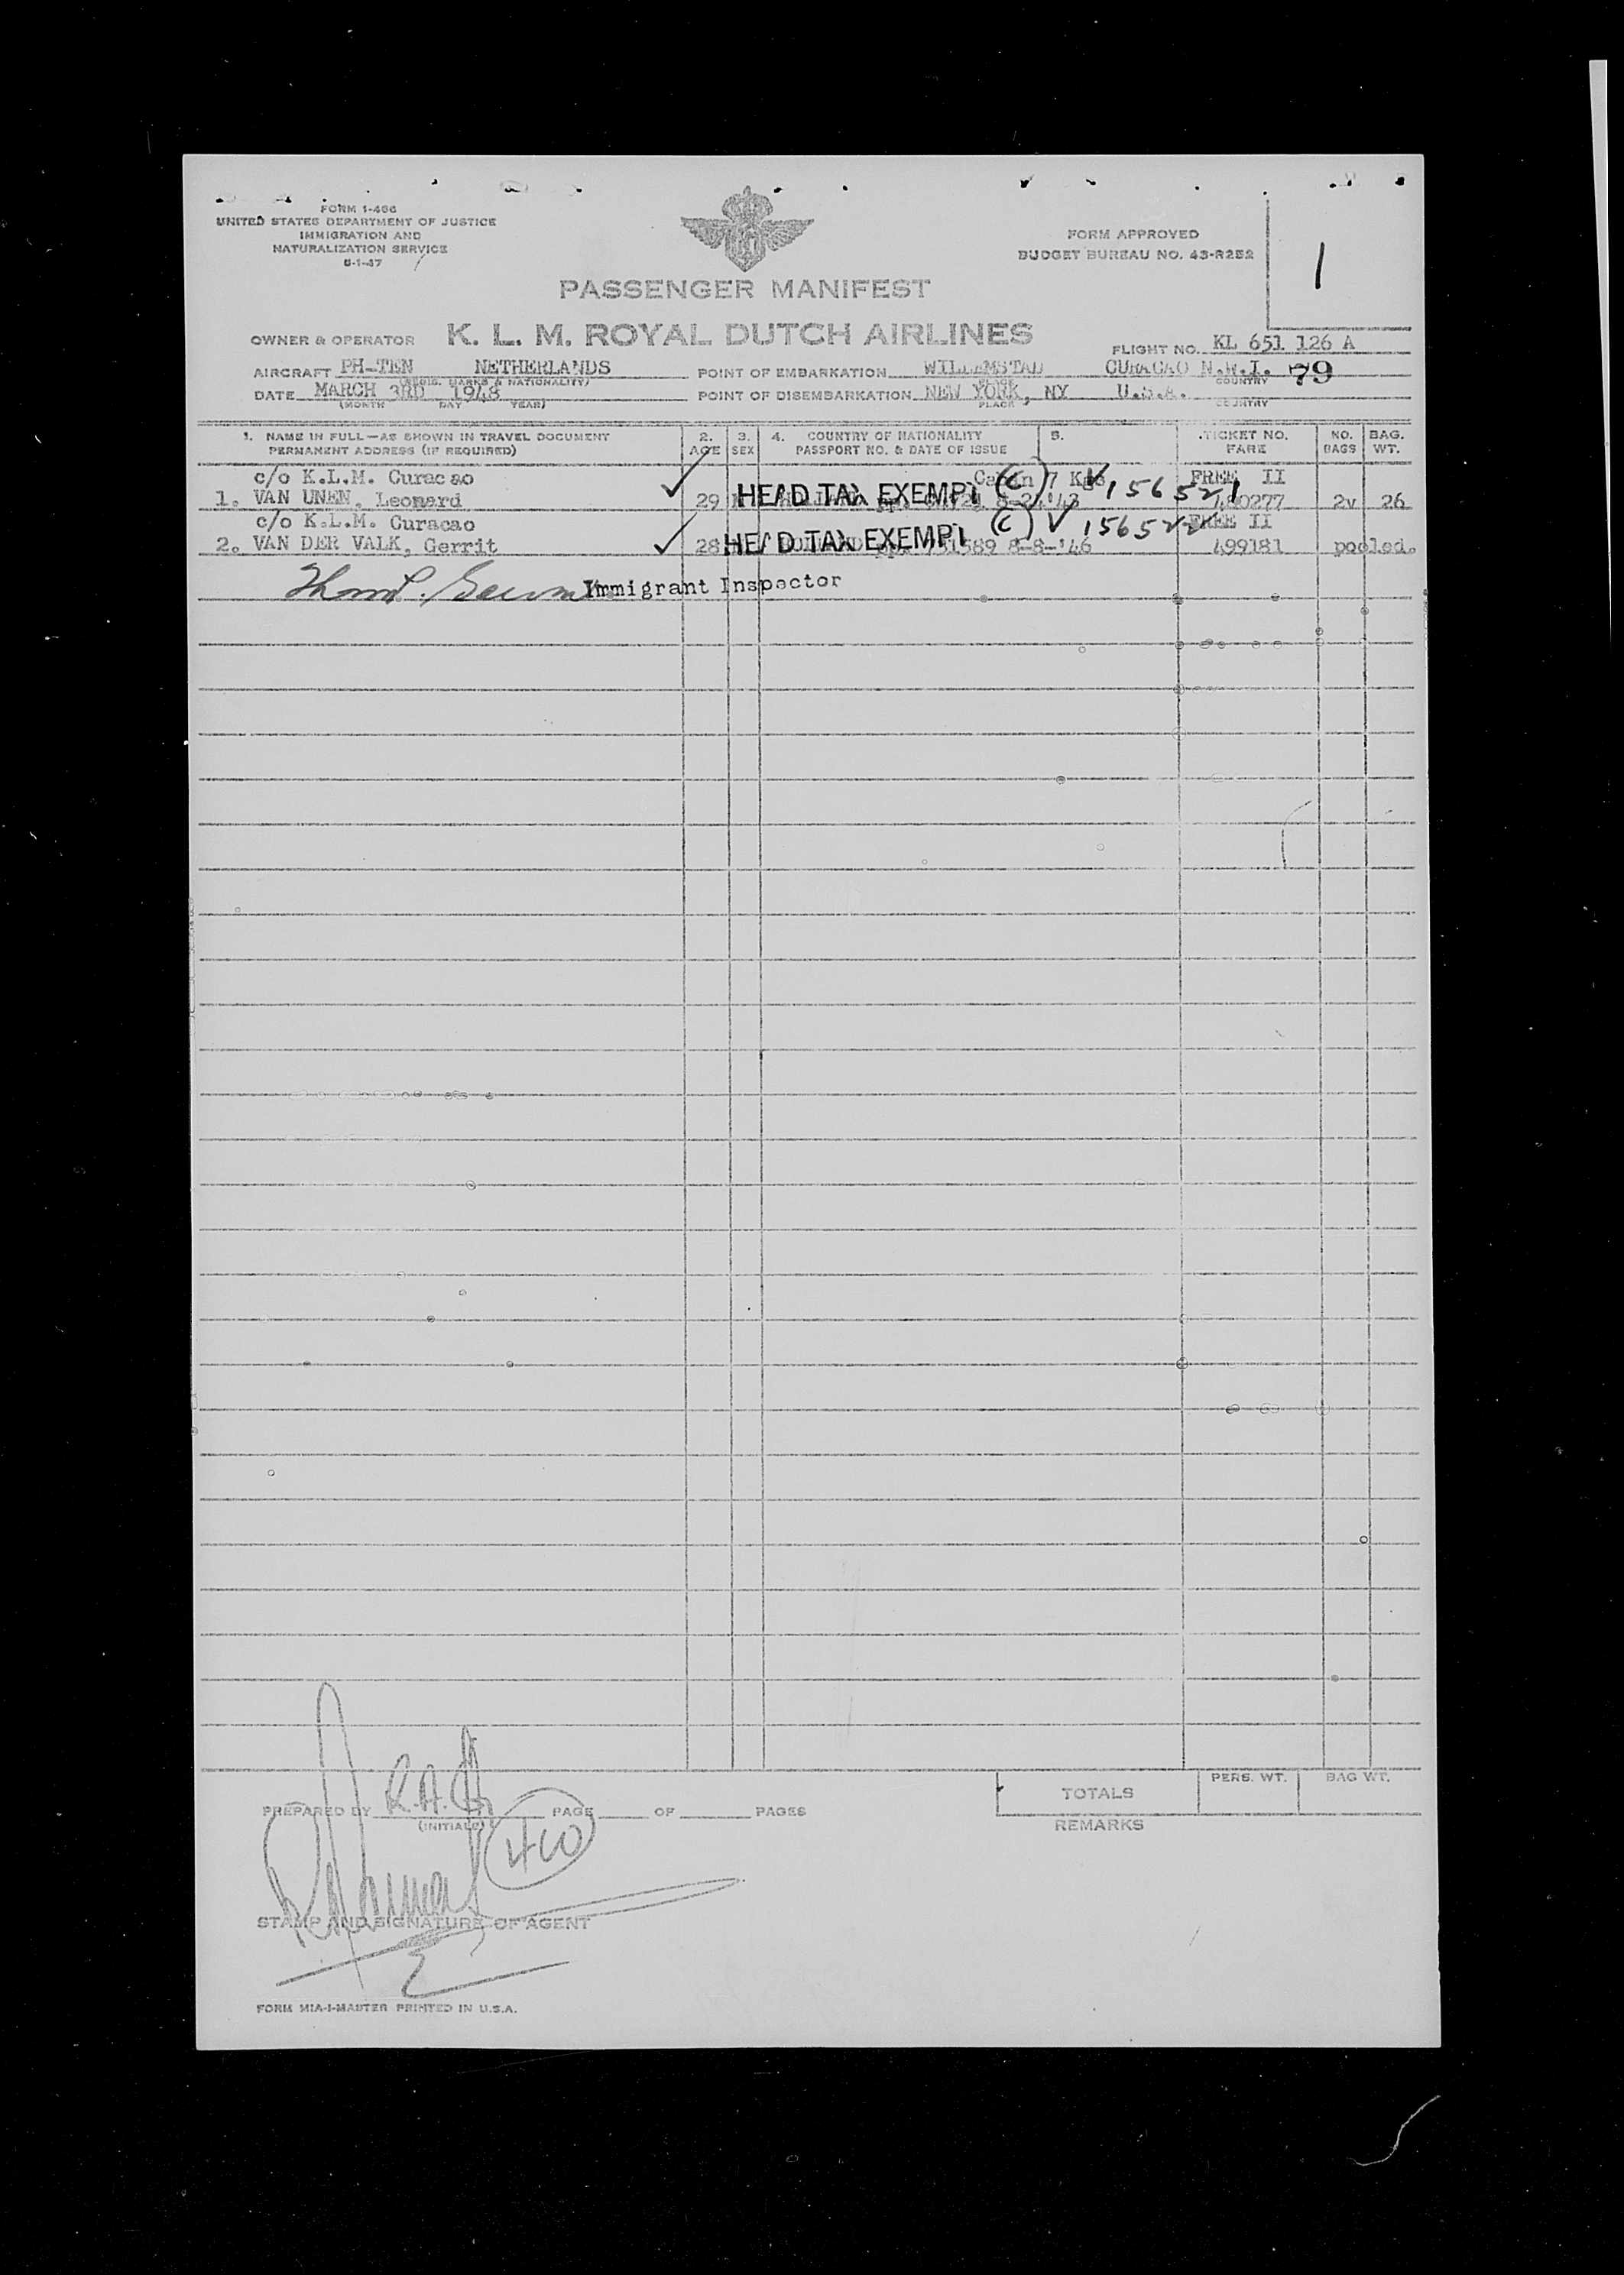 FORM I-466
UNITED STATES DEPARTMENT OF JUSTICE
IMMIGRATION AND
NATURALIZATION SERVICE
FORM APPROVED
BUDGET BUREAU NO. 43-R252
1
PASSENGER MANIFEST
OWNER & OPERATOR K. L. M. ROYAL DUTCH AIRLINES
FLIGHT NO. KL 651 126 A
AIRCRAFT PH-TEN NETHERLANDS POINT OF EMBARKATION WILLEMSTAD CURACAO N.W.I. 79
(REGIS. MARKS & NATIONALITY) PLACE COUNTRY
DATE MARCH 3RD 1948 POINT OF DISEMBARKATION NEW YORK, NY U.S.A.
(MONTH DAY YEAR) PLACE COUNTRY
1. NAME IN FULL—AS SHOWN IN TRAVEL DOCUMENT 2. 3. 4. COUNTRY OF NATIONALITY 5. TICKET NO. NO. BAG.
PERMANENT ADDRESS (IF REQUIRED) AGE SEX PASSPORT NO. & DATE OF ISSUE FARE BAGS WT.
c/o K.L.M. Curacao 7 FREE II
1. VAN UNEN, Leonard 29 HEAD TAX EXEMPT (C) 156521 480277 2v 26
c/o K.L.M. Curacao FREE II
2. VAN DER VALK, Gerrit 28 HEAD TAX EXEMPT (C) 156522 8-8-'46 499181 pooled.
Immigrant Inspector
TOTALS PERS. WT. BAG WT.
PREPARED BY PAGE OF PAGES
(INITIALS)
REMARKS
STAMP AND SIGNATURE OF AGENT
FORM MIA-1-MASTER PRINTED IN U.S.A.